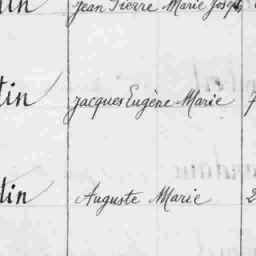 tin Jean Pierre Marie Joseph
tin Jacques Eugène Marie
tin Auguste Marie 2